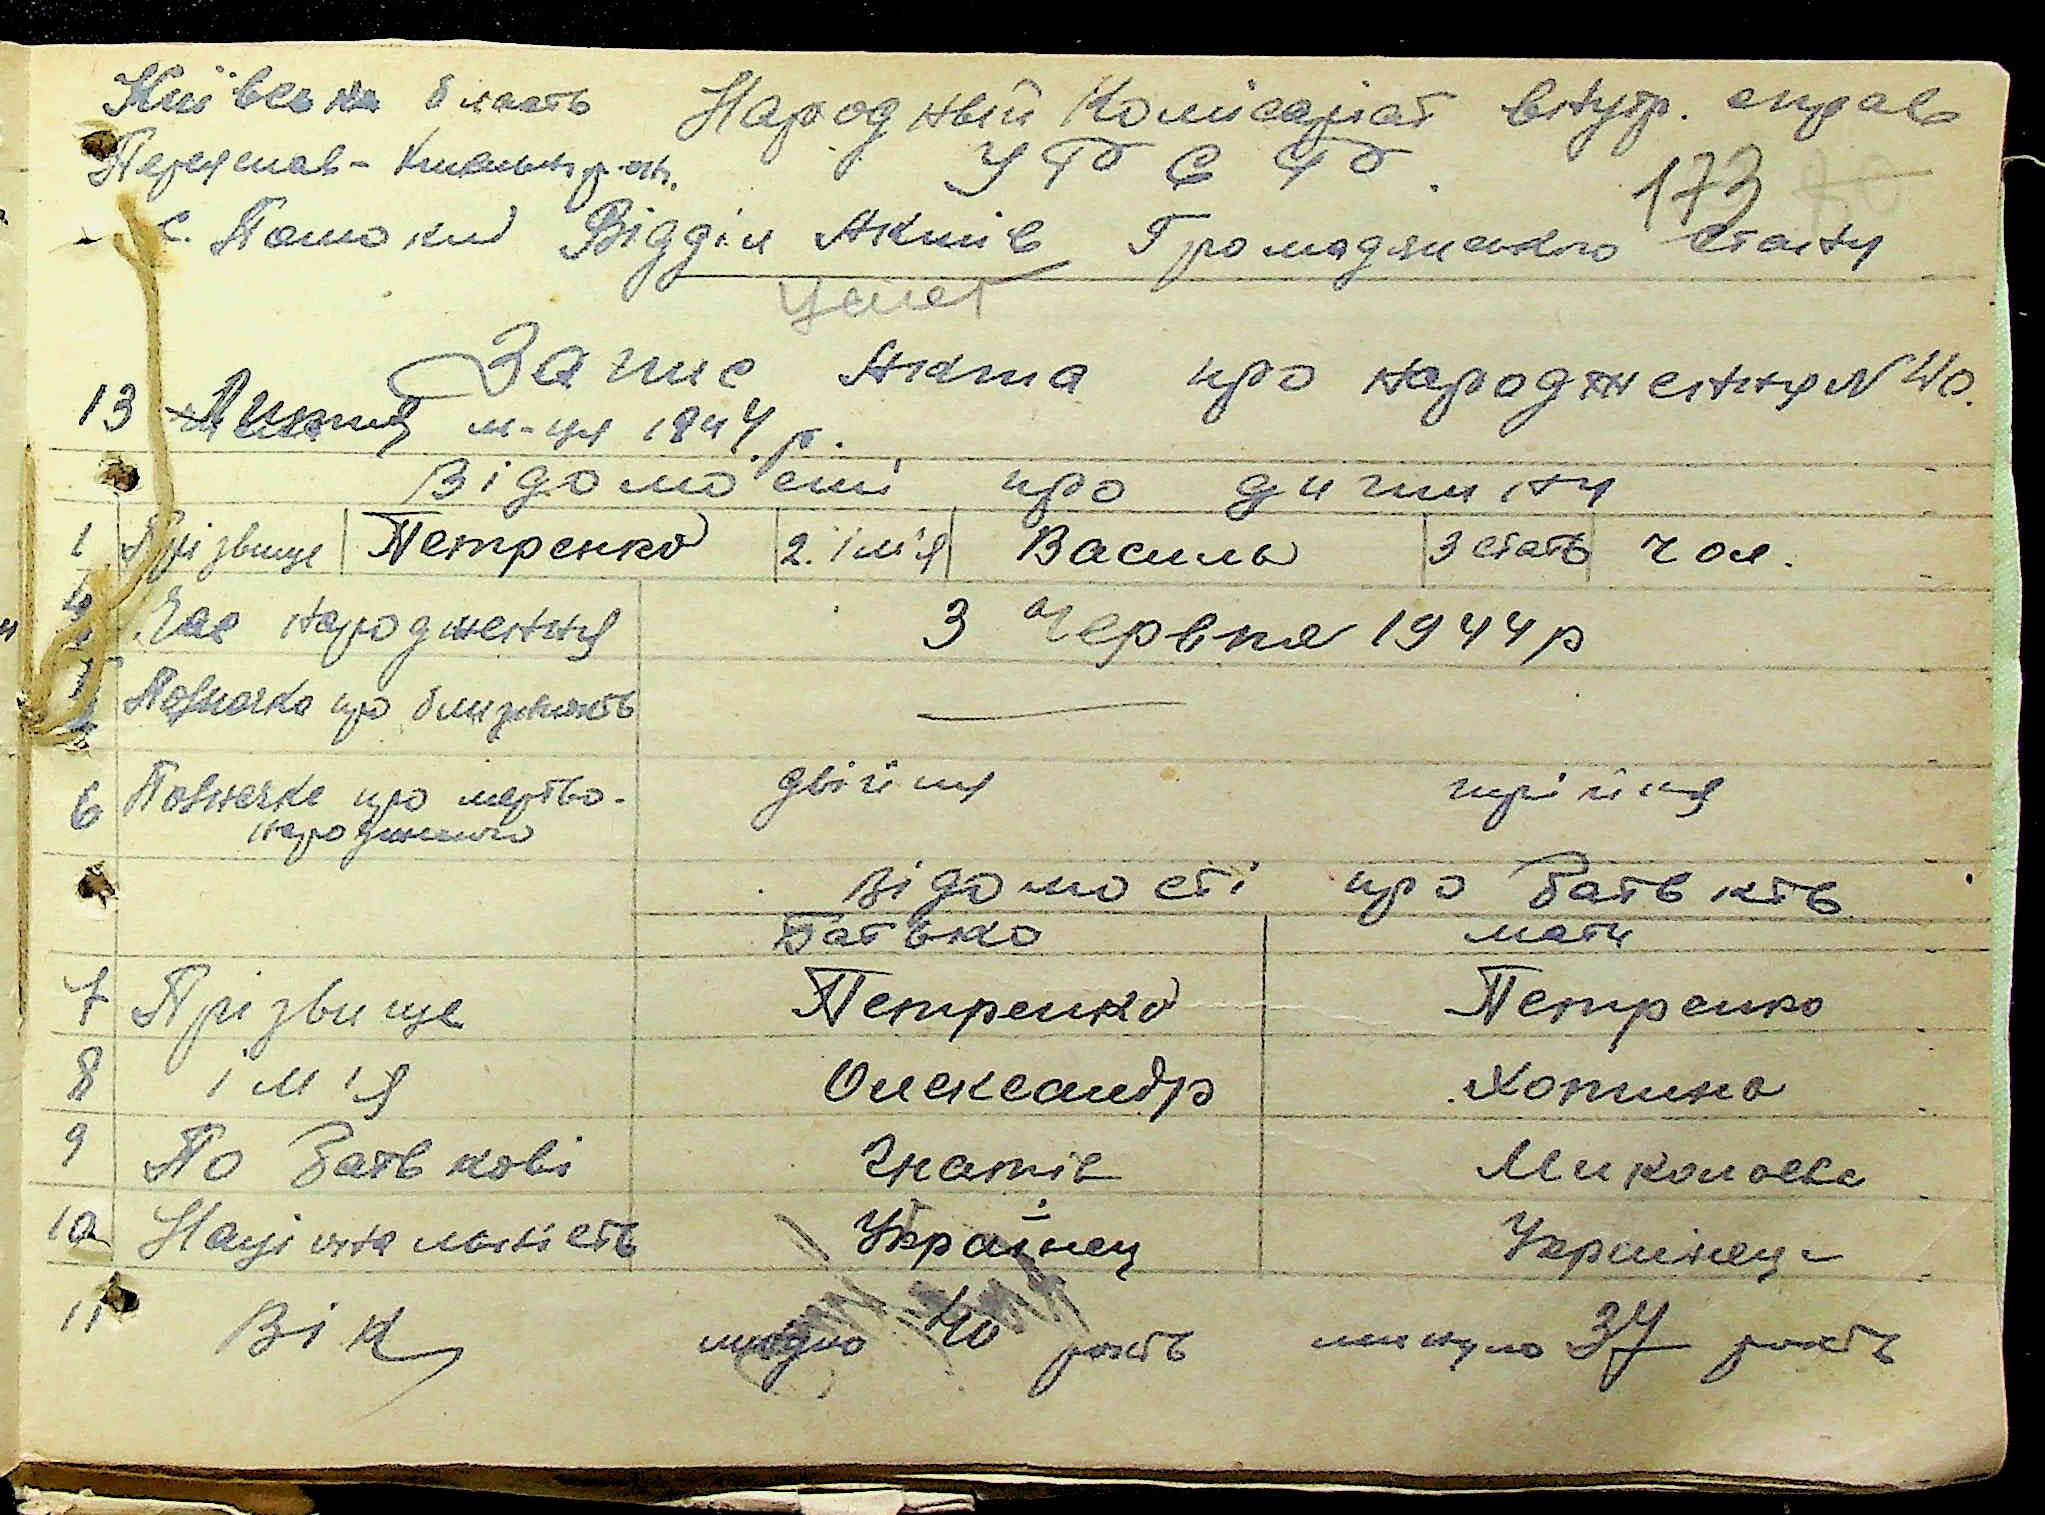 Київська бласть Народный Комісаріат внутр. справ
Переяслав-Хмельн р-он. У Р С Р.
173
с. Потоки Відділ Актів Громадянського стану
Запис Акта про народження N 40.
13 Липня м-ця 1944 р.
Відомості про дитину
1 Прізвище Петренко 2. ім'я Василь 3 стать чол.
4 Час народження 3 Червня 1944 р
5 Позначка про близнят
6 Позначка про мертво- двійня трійня
народженого
Відомості про батьків
Батько мати
7 Прізвище Петренко Петренко
8 ім'я Олександр Хотина
9 По Батькові Гнатів Миколаєва
10 Національність Українец Українец
11 Вік минуло 40 років минуло 37 років